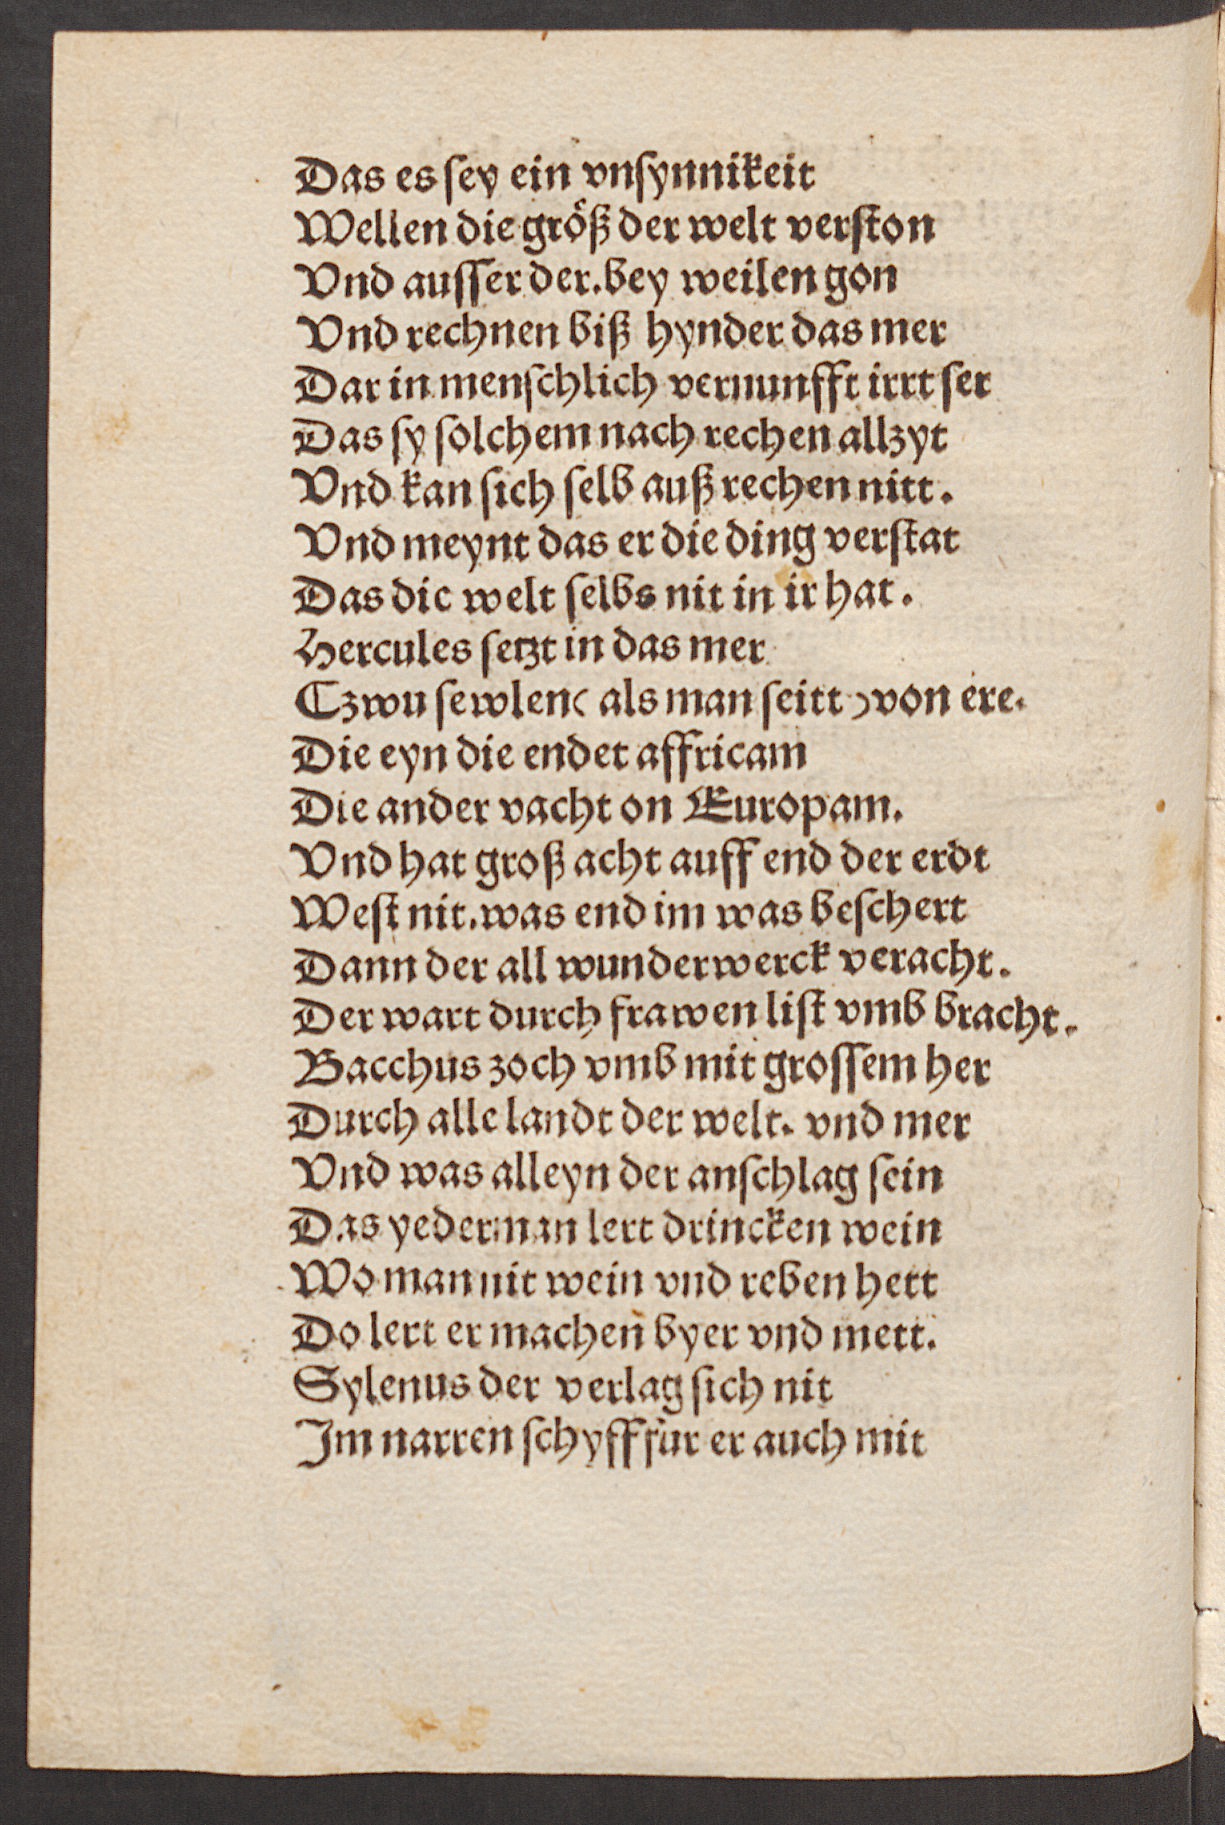 Das es ſey ein vnſynnikeit
Wellen die größ der welt verſton
Vnd auſſer der.bey weilen gon
Vnd rechnen biß hynder das mer
Dar in menſchlich vernunfft irrt ſer
Das ſy ſolchem nach rechen allzyt
Vnd kan ſich ſelb auß rechen nitt.
Vnd meynt das er die ding verſtat
Das die welt ſelbs nit in ir hat.
Hercules ſetzt in das mer
Czwu ſewlen( als man ſeitt )von ere.
Die eyn die endet affricam
Die ander vacht on Europam.
Vnd hat groß acht auff end der erdt
Weſt nit.was end im was beſchert
Dann der all wunderwerck veracht.
Der wart durch frawen liſt vmb bracht.
Bacchus zoch vmb mit groſſem her
Durch alle landt der welt. vnd mer
Vnd was alleyn der anſchlag ſein
Das yederman lert drincken wein
Wo man nit wein vnd reben hett
Do lert er machen byer vnd mett.
Sylenus der verlag ſich nit
Im narren ſchyff fur er auch mit